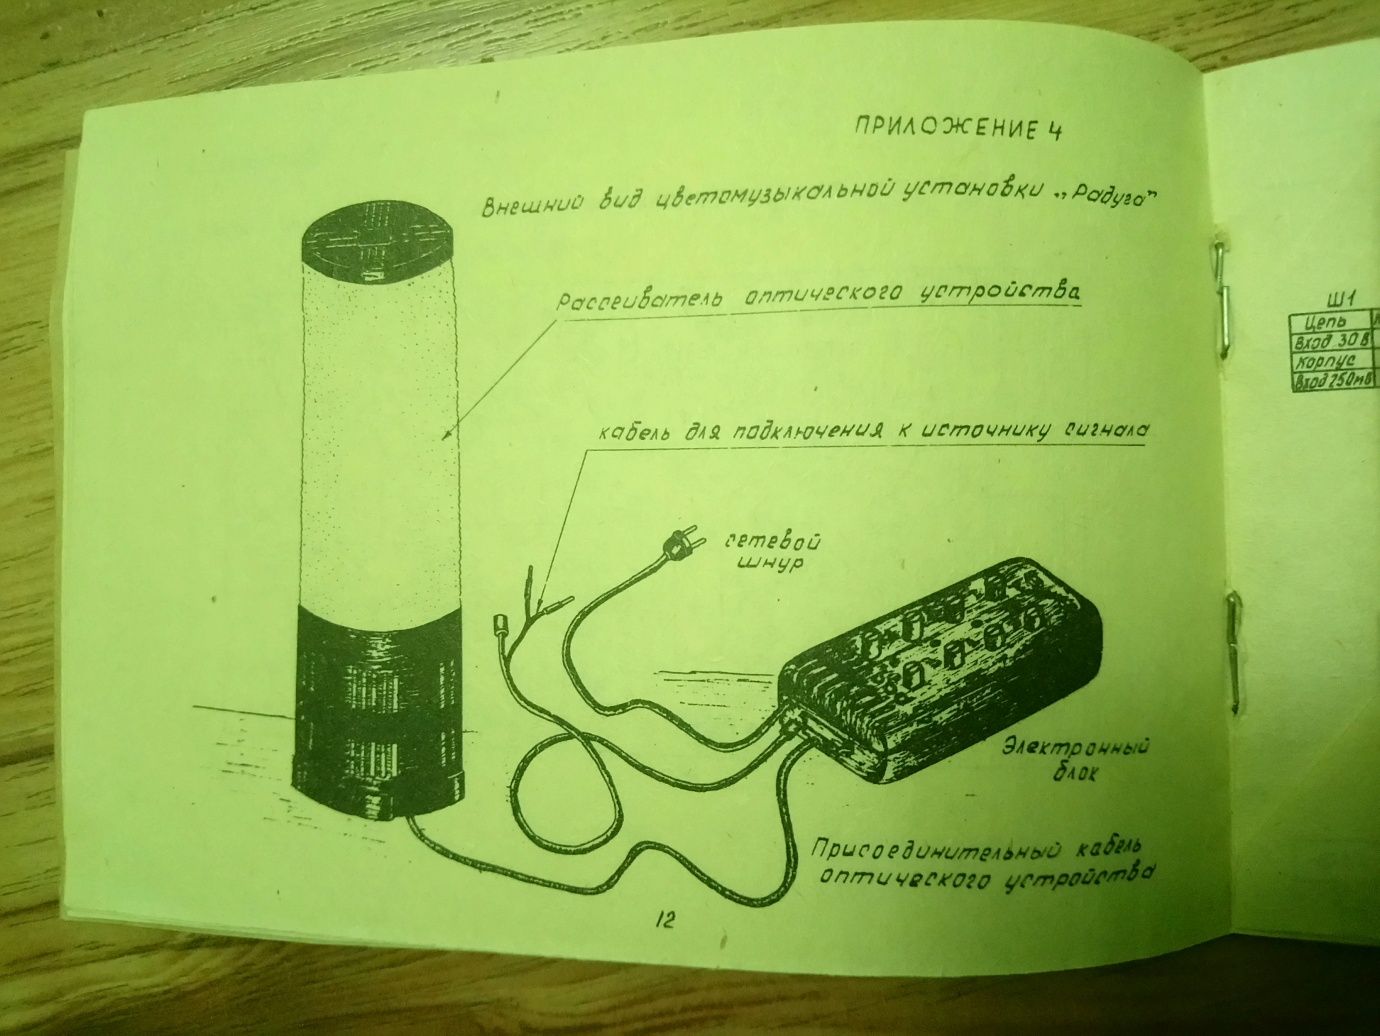 ПРИЛОЖЕНИЕ 4
Внешний вид цветомузыкальной установки „Радуга"
Рассеиватель оптического устройства
кабель для подключения к источнику сигнала
сетевой
шнур
Электронный
блок
Присоединительный кабель
оптического устройства
12
Ш1
Цепь
Вход 30 В
Корпус
Вход 250мв